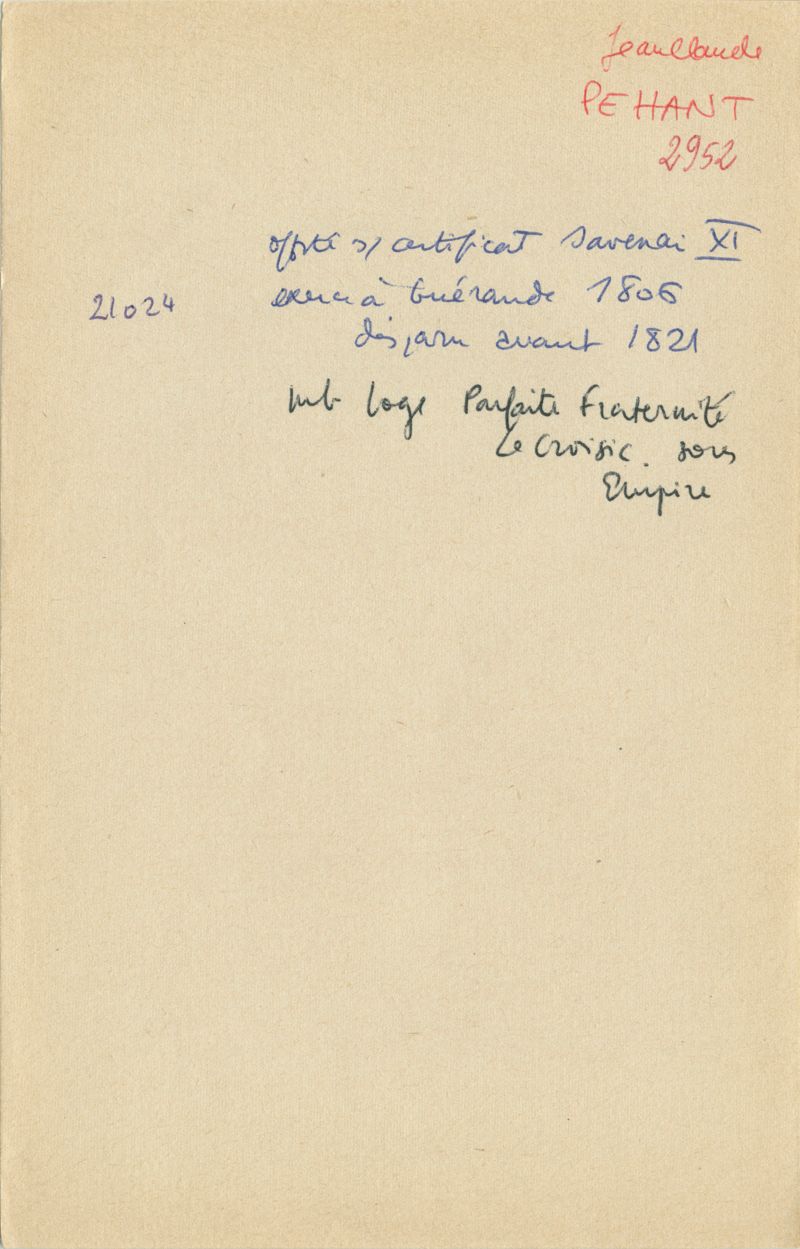 Jean Claude
PEHANT
2952
offté s/ certificat Savenai XI
21024
exerce à Guérande 1806
disparu avant 1821
mb loge Parfaite Fraternité
Le Croisic. sous
Empire